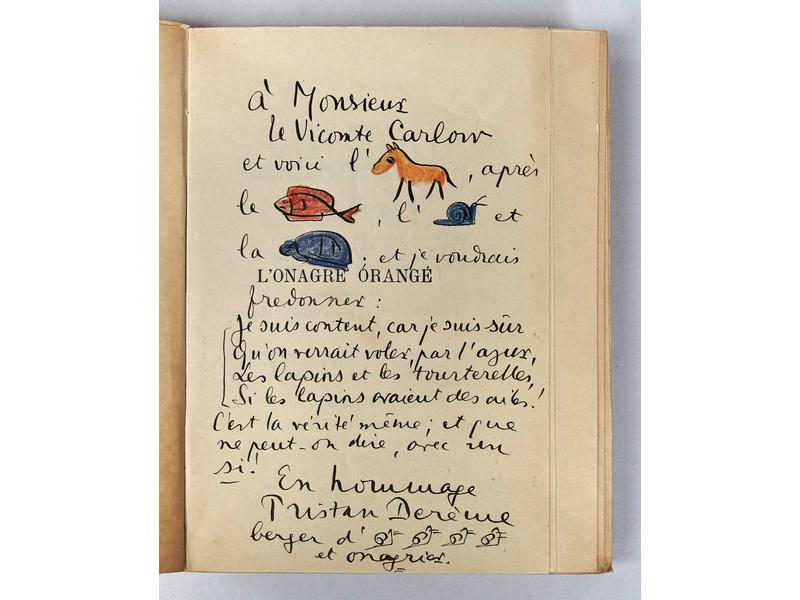 à Monsieur
le Vicomte Carlow
et voici l' , après
le , l' et
la . et je voudrais
L'ONAGRE ORANGÉ
fredonner :
Je suis content, car je suis sûr
Qu'on verrait voler, par l'azur,
Les lapins et les tourterelles,
Si les lapins avaient des ailes !
C'est la vérité même ; et que
ne peut-on dire, avec un
si !
En hommage
Tristan Derème
berger d'
et onagrier.